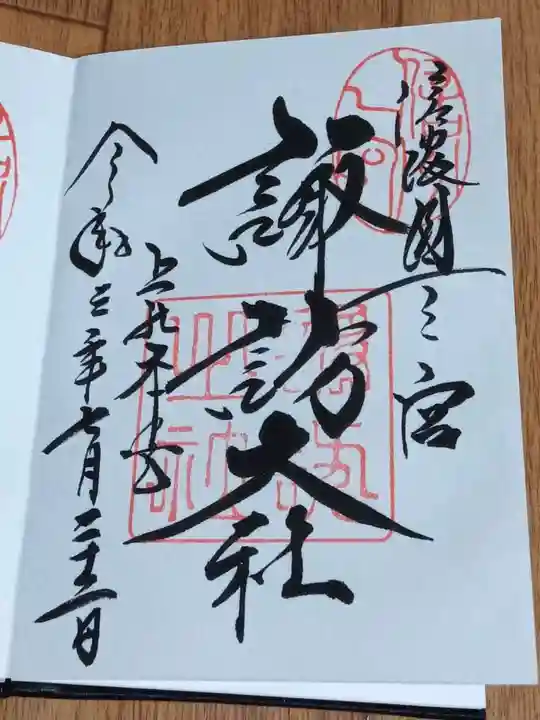 信濃國一之宮
諏訪大社
上社本宮
令和三年七月二十一日